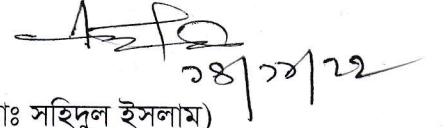 ১৪/১১/২২
াঃ সহিদুল ইসলাম)